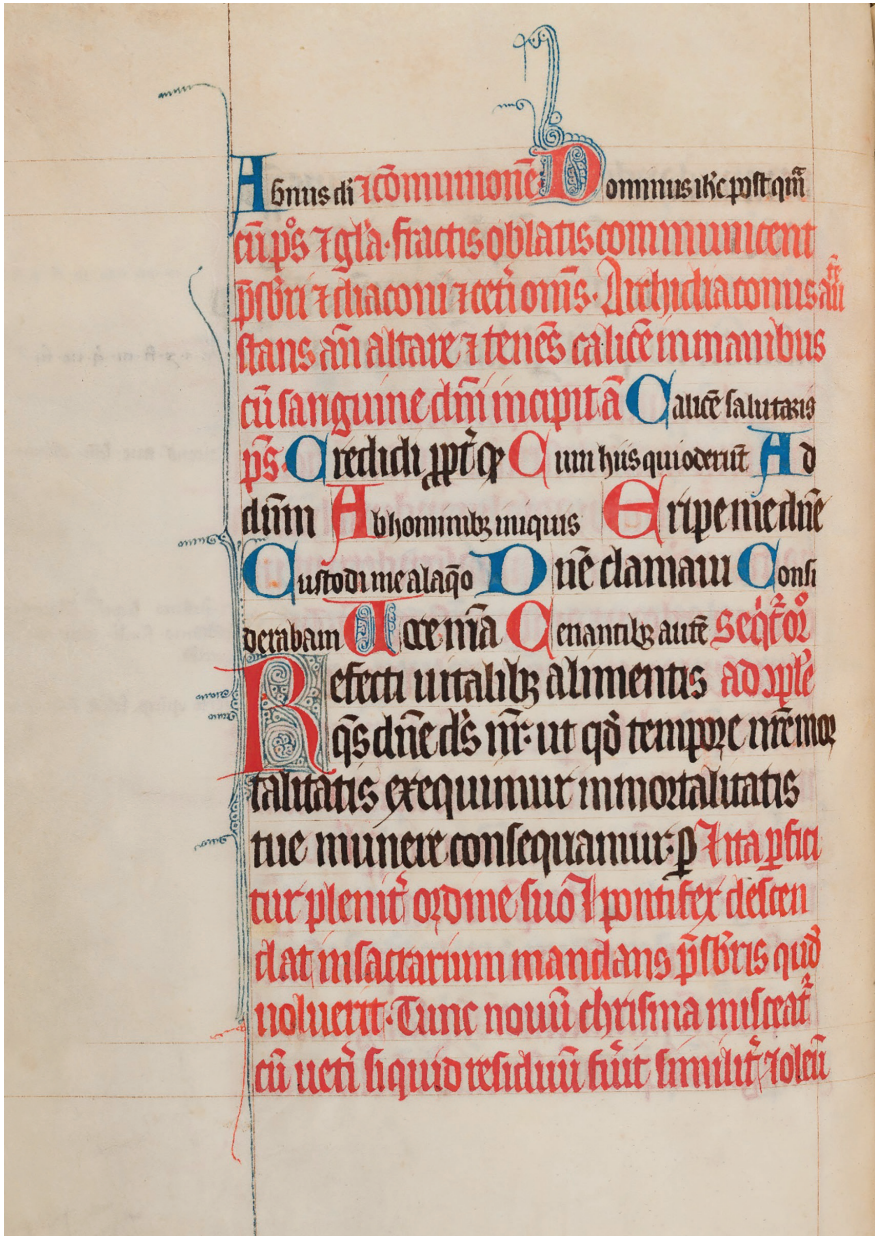 Agnus di ⁊ cōmunionē Dominus ihc̄ post qm̄
cū pꝰs ⁊ gl̄a. fractis oblatis communicent
p̄sbri ⁊ diaconi ⁊ cet̄i om̄s. Archidiaconus aūtē
stans an̄ altare ⁊ tenēs calicē in manibus
cū sanguine dm̄ incipit ā Calicē salutaris
p̄s. Credidi ꝓpt̄ qͥ Cum hiis qui oderūt Ad
dūm Ab hominibꝫ iniquis Eripe me dn̄e
Custodi me a laq̄o Dn̄e clamaui Consi
derabam Uoce m̄a Cenantibꝫ autē Seqͥt̄ or̄o
Refecti uitalibꝫ alimentis ad ↄplē
q̄s dn̄e d̄s nr̄: ut qd̄ tempore nr̄e mor
talitatis exequimur inmortalitatis
tue munere consequamur: ꝑ Ita ꝑfici
tur plenit̄ ordine suo ⁊ pontifex descen
dat in sacrarium mandans p̄sbris quod
uoluerit. Tunc nouū chrisma misceat̄
cū uet̄i si quid residuū fu̇it similit̄ ⁊ oleū